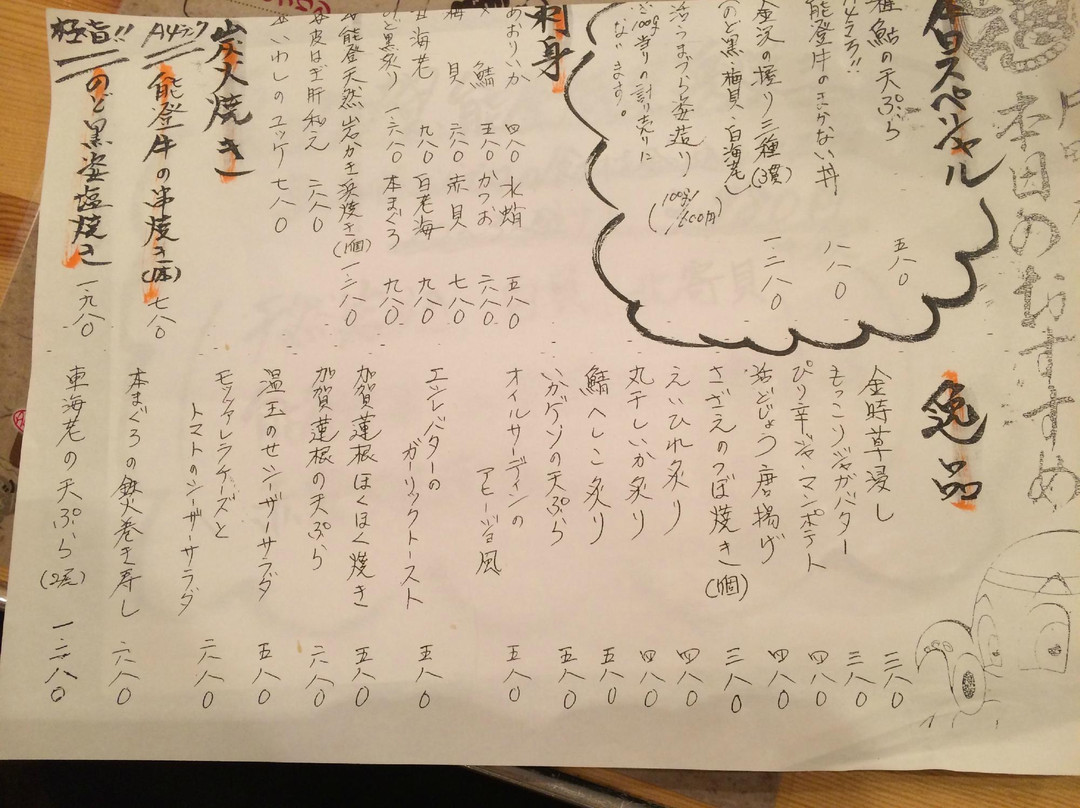 本日のおすすめ
スペシャル
鮎の天ぷら 五八〇
能登牛のまかない丼 一八八〇
金沢の握り三種(3貫) 一二八〇
(のど黒・梅貝・白海老)
活うまづら姿造り (100g/600円)
刺身
あおりいか 四八〇
水蛸 五八〇
鯖 五八〇
かつお 六八〇
貝 六八〇
赤貝 七八〇
海老 九八〇
白老海 九八〇
のど黒炙り 一六八〇
本まぐろ 九八〇
能登天然岩がき浜焼き(1個) 一二八〇
皮はぎ肝和え 六八〇
いわしのユッケ 七八〇
炭火焼き
A4ランク
能登牛の串焼き(1本) 七八〇
極旨!!
のど黒姿塩焼き 一九八〇
逸品
金時草浸し 三八〇
もっこりジャガバター 三八〇
ぴり辛ジャーマンポテト 四八〇
活どじょう唐揚げ 四八〇
さざえのつぼ焼き(1個) 三八〇
えいひれ炙り 四八〇
丸干しいか炙り 四八〇
鯖へしこ炙り 五八〇
いかゲソの天ぷら 五八〇
オイルサーディンの
アヒージョ風 五八〇
エシレバターの
ガーリックトースト 五八〇
加賀蓮根ほくほく焼き 五八〇
加賀蓮根の天ぷら 六八〇
温玉のせシーザーサラダ 五八〇
モッツァレラチーズと
トマトのシーザーサラダ 六八〇
本まぐろの鉄火巻き寿し 六八〇
車海老の天ぷら(2尾) 一二八〇